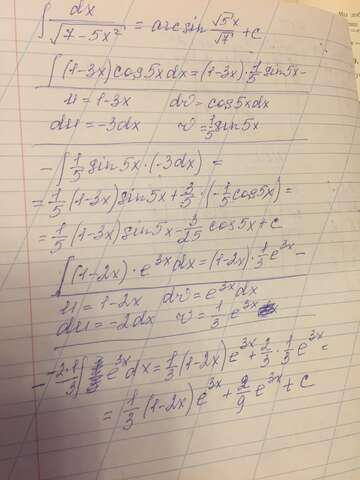 ∫ dx / √(7-5x²) = arcsin √5x / √7 + c
∫(1-3x)cos5xdx = (1-3x)·1/5 sin5x -
u = 1-3x dv = cos5xdx
du = -3dx v = 1/5 sin5x
- ∫ 1/5 sin5x·(-3dx) =
= 1/5 (1-3x)sin5x + 3/5 · (-1/5 cos5x) =
= 1/5 (1-3x)sin5x - 3/25 cos5x + c
∫(1-2x)·e^3x dx = (1-2x)·1/3 e^3x -
u = 1-2x dv = e^3x dx
du = -2dx v = 1/3 e^3x
- -2·1/3 ∫ e^3x dx = 1/3 (1-2x)e^3x + 2/3 · 1/3 e^3x =
= 1/3 (1-2x)e^3x + 2/9 e^3x + c